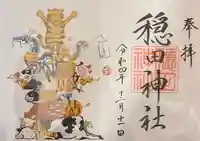 奉拝
穏田神社
令和四年十二月十一日